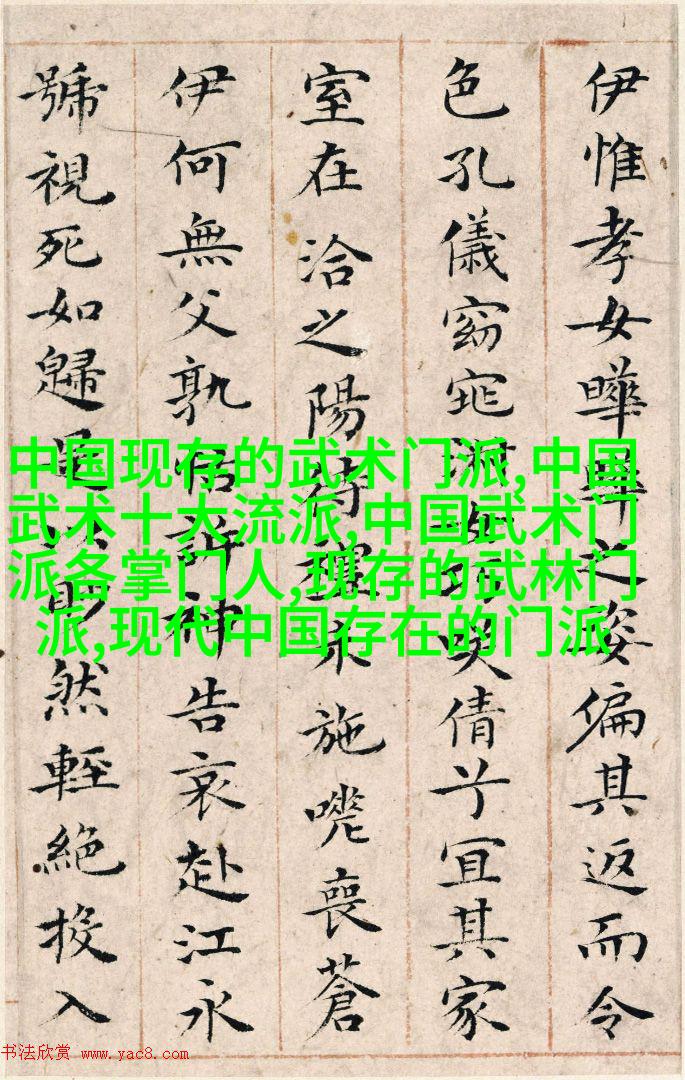 伊惟孝女曄曄之姿偏其返而令
色孔儀窈窕淑女巧笑倩兮宜其家
室在洽之陽待禮未施嗟喪蒼
伊何無父孰怙訴神告哀赴江永
號視死如歸是以眇然輕絕投入
中国现存的武术门派,中国
武术十大流派,中国武术门
派各掌门人,现存的武林门
派,现代中国存在的门派
书法欣赏 www.yac8.com